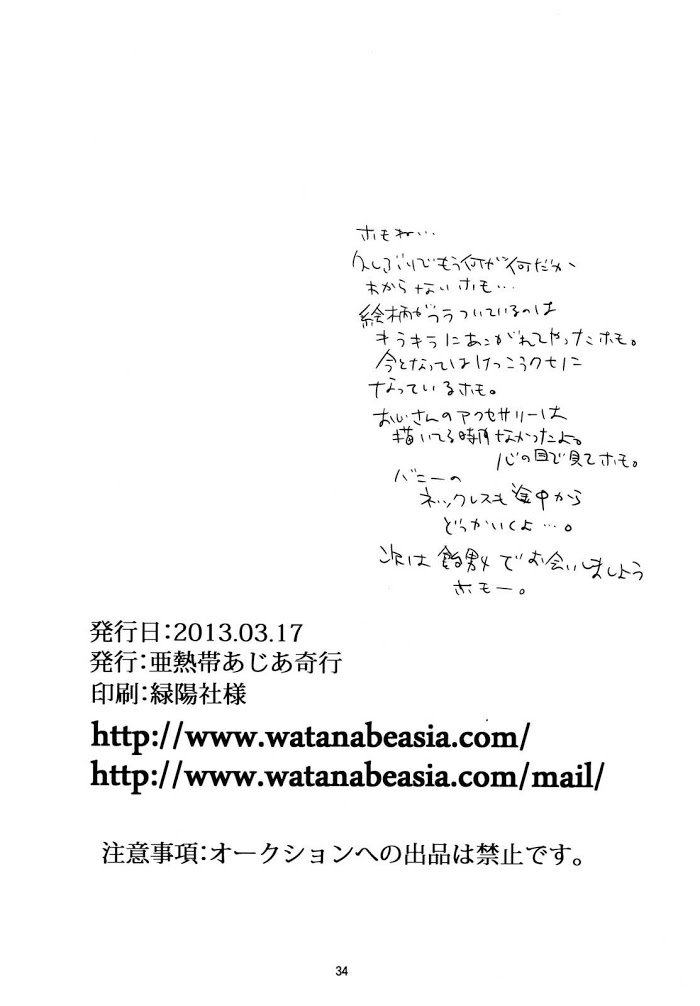 ホモね…
久しぶりでもう何が何だか
わからないホモ…
絵柄がフラついているのは
キラキラにあこがれてやったホモ。
今となってはけっこうクセに
なっているホモ。
おじさんのアクセサリーは
描いてる時間なかったよ。
心の目で見てホモ。
バニーの
ネックレスも途中から
どっかいくよ…。
次は でお会いしましょう
ホモー。
発行日:2013.03.17
発行:亜熱帯あじあ奇行
印刷:緑陽社様
http://www.watanabeasia.com/
http://www.watanabeasia.com/mail/
注意事項:オークションへの出品は禁止です。
34